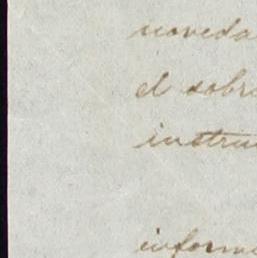 noveda
el sobr
instru
inform